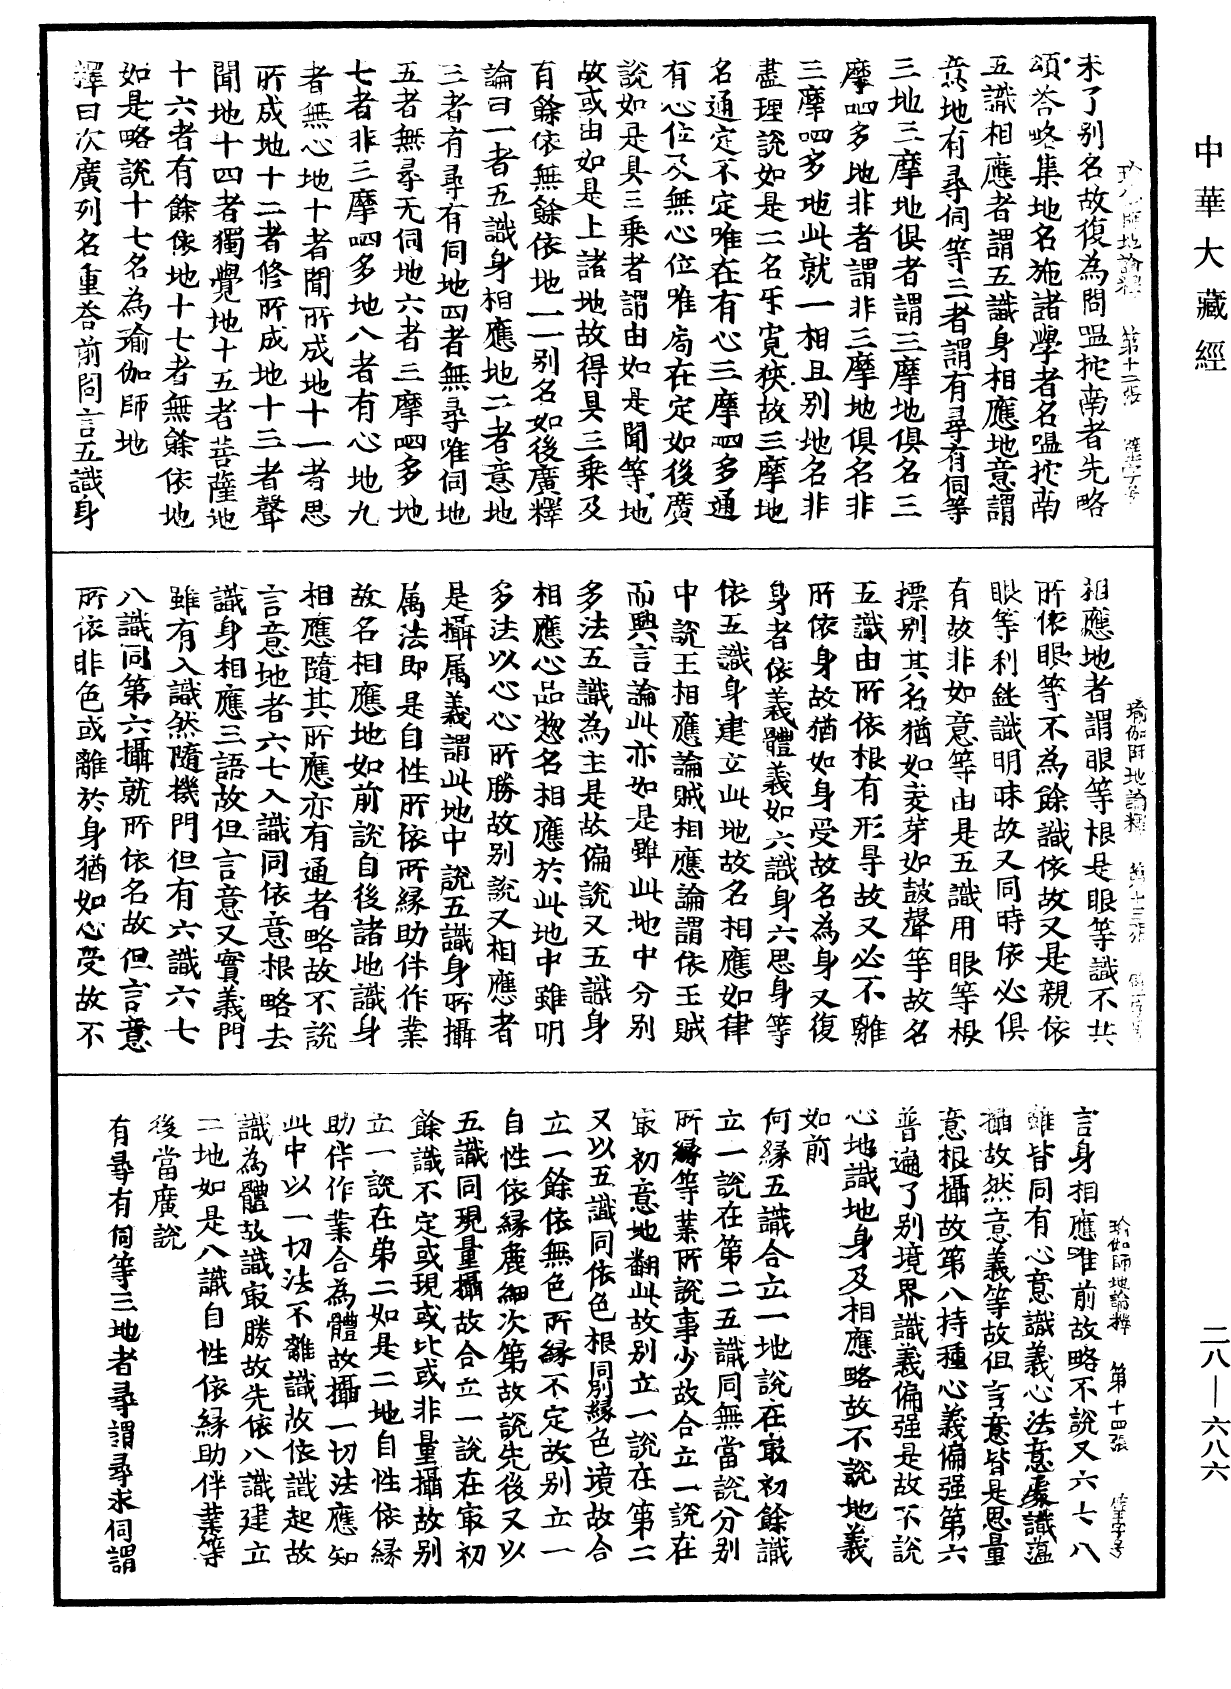 中華大藏經
未了別名故復為問嗢柁南者先略
頌荅略集地名施諸學者名嗢柁南
五識相應者謂五識身相應地意謂
意地有尋伺等三者謂有尋有伺等
三地三摩地俱者謂三摩地俱名三
摩呬多地非者謂非三摩地俱名非
三摩呬多地此就一相且別地名非
盡理說如是二名乐寬狹故三摩地
名通定不定唯在有心三摩呬多通
有心位及無心位唯局在定如後廣
說如是具三乘者謂由如是聞等地
故或由如是上諸地故得具三乘及
有餘依無餘依地一一別名如後廣釋
論曰一者五識身相應地二者意地
三者有尋有伺地四者無尋唯伺地
五者無尋无伺地六者三摩呬多地
七者非三摩呬多地八者有心地九
者無心地十者聞所成地十一者思
所成地十二者修所成地十三者聲
聞地十四者獨覺地十五者菩薩地
十六者有餘依地十七者無餘依地
如是略說十七名為瑜伽師地
釋曰次廣列名重荅前問言五識身
瑜伽師地論釋 第十三張
相應地者謂眼等根是眼等識不共
所依眼等不為餘識依故又是親依
眼等利鈍識明昧故又同時依必俱
有故非如意等由是五識用眼等根
摽別其名猶如麦芽如鼓聲等故名
五識由所依根有形㝵故又必不離
所依身故猶如身受故名為身又復
身者依義體義如六識身六思身等
依五識身建立此地故名相應如律
中說王相應論賊相應論謂依王賊
而興言論此亦如是雖此地中分別
多法五識為主是故偏說又五識身
相應心品惣名相應於此地中雖明
多法以心心所勝故別說又相應者
是攝属義謂此地中說五識身所攝
属法即是自性所依所緣助伴作業
故名相應地如前說自後諸地識身
相應隨其所應亦有通者略故不說
言意地者六七八識同依意根略去
識身相應三語故但言意又實義門
雖有八識然隨機門但有六識六七
八識同第六攝就所依名故但言意
所依非色或離於身猶如心受故不
瑜伽師地論釋 第十四張
言身相應准前故略不說又六七八
雖皆同有心意識義心法意處識蘊
攝故然意義等故但言意皆是思量
意根攝故第八持種心義偏强第六
普遍了別境界識義偏强是故不說
心地識地身及相應略故不說地義
如前
何緣五識合立一地說在最初餘識
立一說在第二五識同無當說分別
所緣等業所說事少故合立一說在
冣初意地翻此故別立一說在第二
又以五識同依色根同別緣色境故合
立一餘依無色所緣不定故別立一
自性依緣麁細次第故說先後又以
五識同現量攝故合立一說在冣初
餘識不定或現或比或非量攝故別
立一說在第二如是二地自性依緣
助伴作業合為體故攝一切法應知
此中以一切法不離識故依識起故
識為體故識冣勝故先依八識建立
二地如是八識自性依緣助伴業等
後當廣說
有尋有伺等三地者尋謂尋求伺謂
二八—六八六